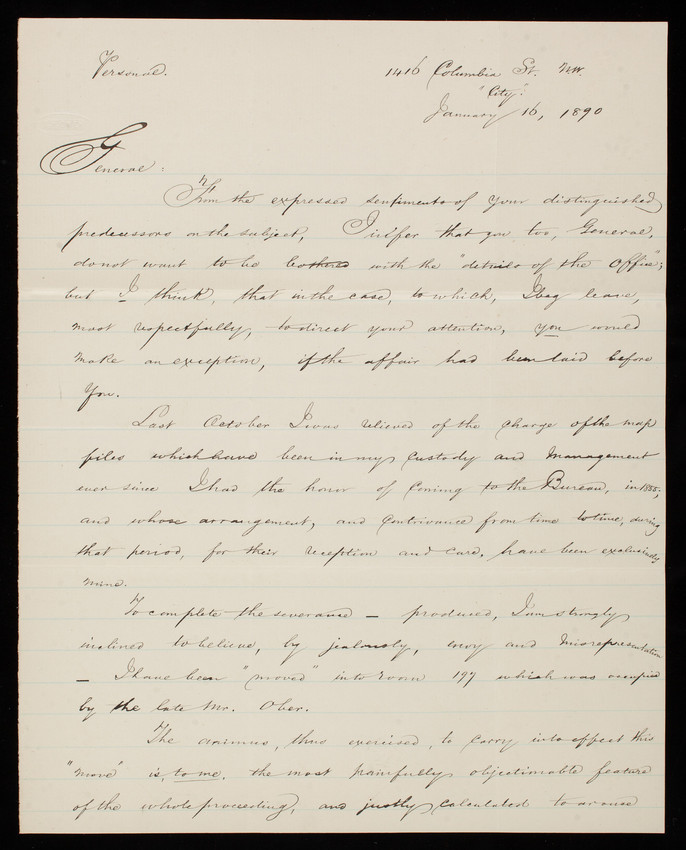 Personal.
1416 Columbia St. NW.
"City".
January 16, 1890
General:
From the expressed sentiments of your distinguished
predecessors on the subject, I infer that you too, General,
do not want to be bothered with the "details of the office";
but I think, that in the case, to which, I beg leave,
most respectfully, to direct your attention, you would
make an exception, if the affair had been laid before
you.
Last October I was relieved of the charge of the map
files which have been in my custody and management
ever since I had the honor of coming to the Bureau, in 1855;
and whose arrangement, and contrivance from time to time, during
that period, for their reception and care, have been exclusively
mine.
To complete the severance — produced, I'm strongly
inclined to believe, by jealousy, envy and misrepresentation
— I have been "moved" into room 197 which was occupied
by the late Mr. Ober.
The animus, thus exercised, to carry into effect this
"move" is, to me, the most painfully objectionable feature
of the whole proceeding, and justly calculated to arouse